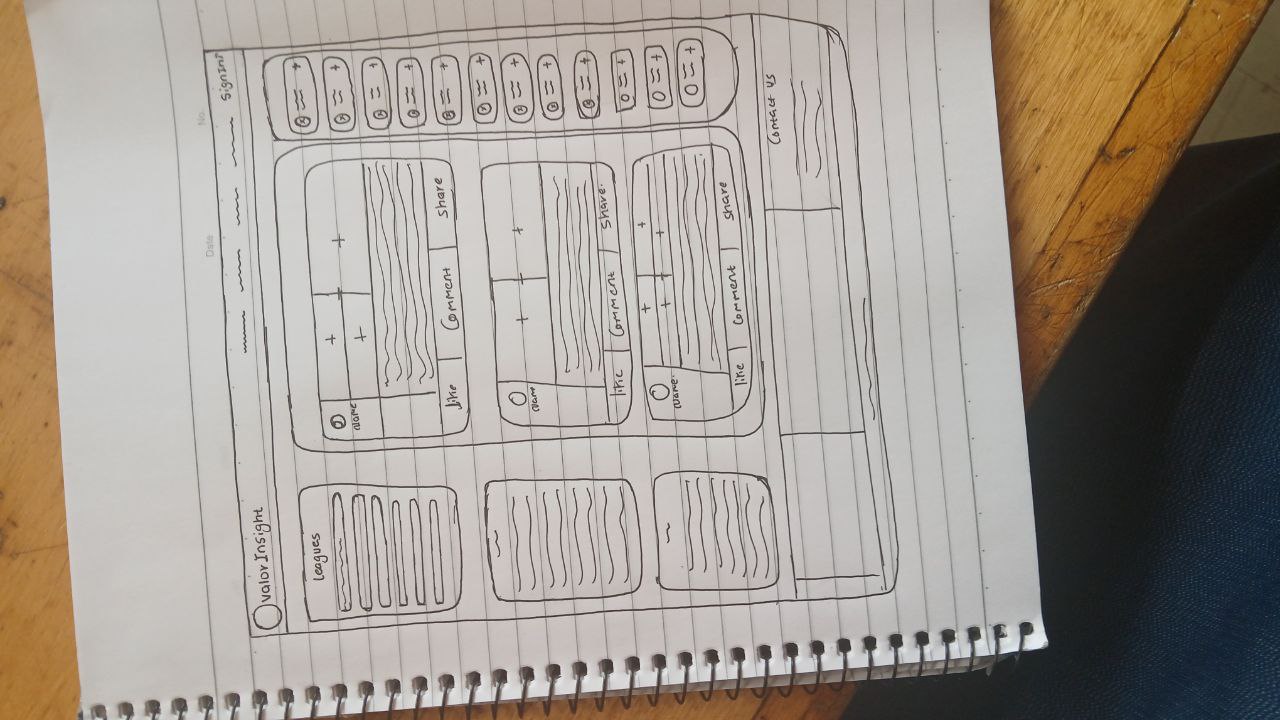 No.
Date
Valor Insight
SignIn
Leagues
Name
like | Comment | share
Name
like | Comment | share
Name
like | Comment | share
Contact Us